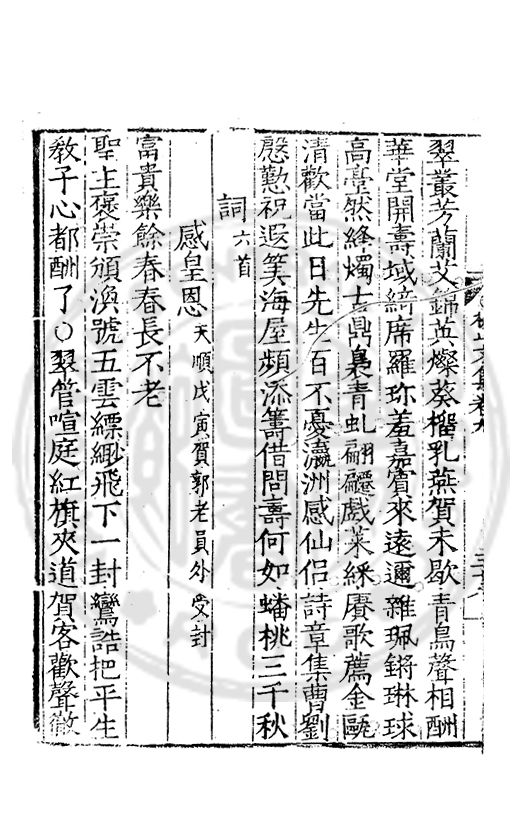 翠叢芳蘭艾錦英燦葵榴乳燕賀未歇青鳥聲相酬
華堂開壽域綺席羅珎羞嘉賓來遠邇雜珮鏘琳球
高臺然絳燭古鼎裊青虬翩戲萊綵賡歌薦金甌
清歡當此日先生百不憂瀛洲感仙侶詩章集曹劉
慇懃祝遐筭海屋頻添籌借問壽何如蟠桃三千秋
詞六首
感皇恩天順戊寅賀郭老員外受封
富貴樂餘春春長不老
聖上褒崇頒渙號五雲縹緲飛下一封鸞誥把平生
教子心都酬了○翠管喧庭紅旗夾道賀客歡聲徹
文集卷九